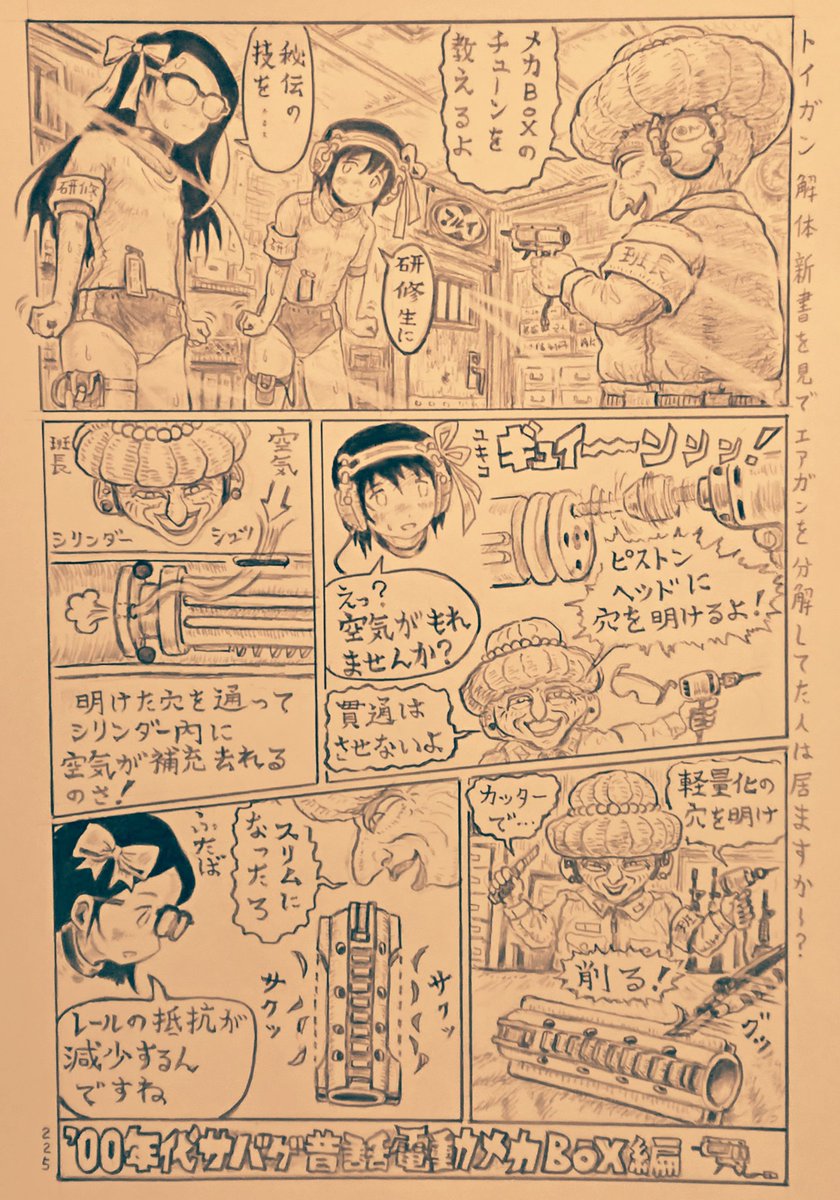 トイガン解体新書を見てエアガンを分解してた人は居ますか～?
メカBOXの
チューンを
教えるよ
班長
マルイ
研修生に
研修
秘伝の
技を…
研修
ギュイーーンッッッ!
ピストン
ヘッドに
穴を明けるよ!
ユキコ
えっ?
空気がもれ
ませんか?
貫通は
させないよ
空気
班長
シリンダー
シュッ
明けた穴を通って
シリンダー内に
空気が補充去れる
のさ!
軽量化の
穴を明け
カッター
で…
班
削る!
グッ
スリムに
なったろ
サクッ
サクッ
ふたば
レールの抵抗が
減少するん
ですね
'00年代サバゲ昔話電動メカBOX編
225